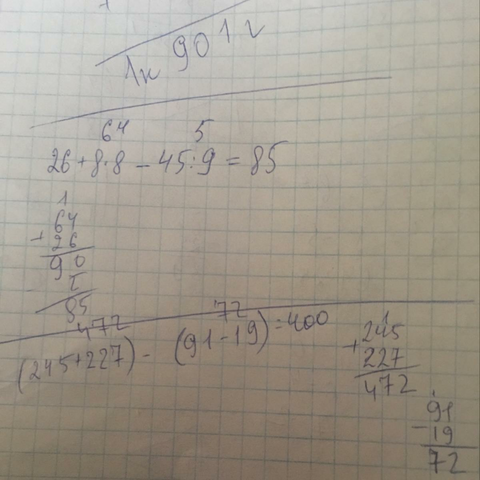 1к 901г
64 5
26+8·8-45:9=85
1
64
+26
90
5
85
472 72
(245+227)-(91-19)=400
1
245
+227
472
91
-19
72